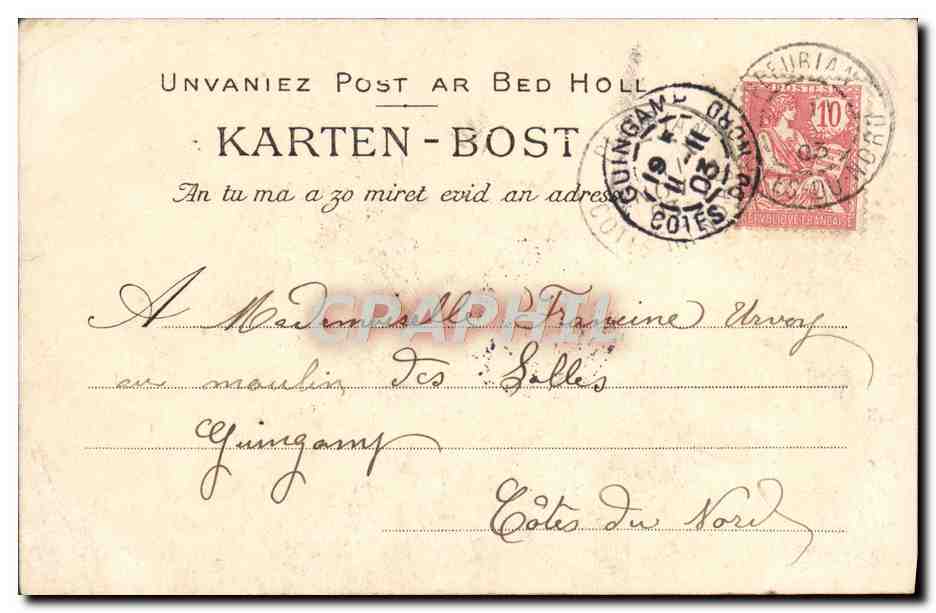 UNVANIEZ POST AR BED HOLL
KARTEN-BOST
An tu ma a zo miret evid an adres
POSTES
10
RÉPUBLIQUE FRANÇAISE
GUINGAMP
19 11 03
COTES DU NORD
A Mademoiselle Francine Urvoy
au moulin des Salles
Guingamp
Côtes du Nord
CPAPHIL